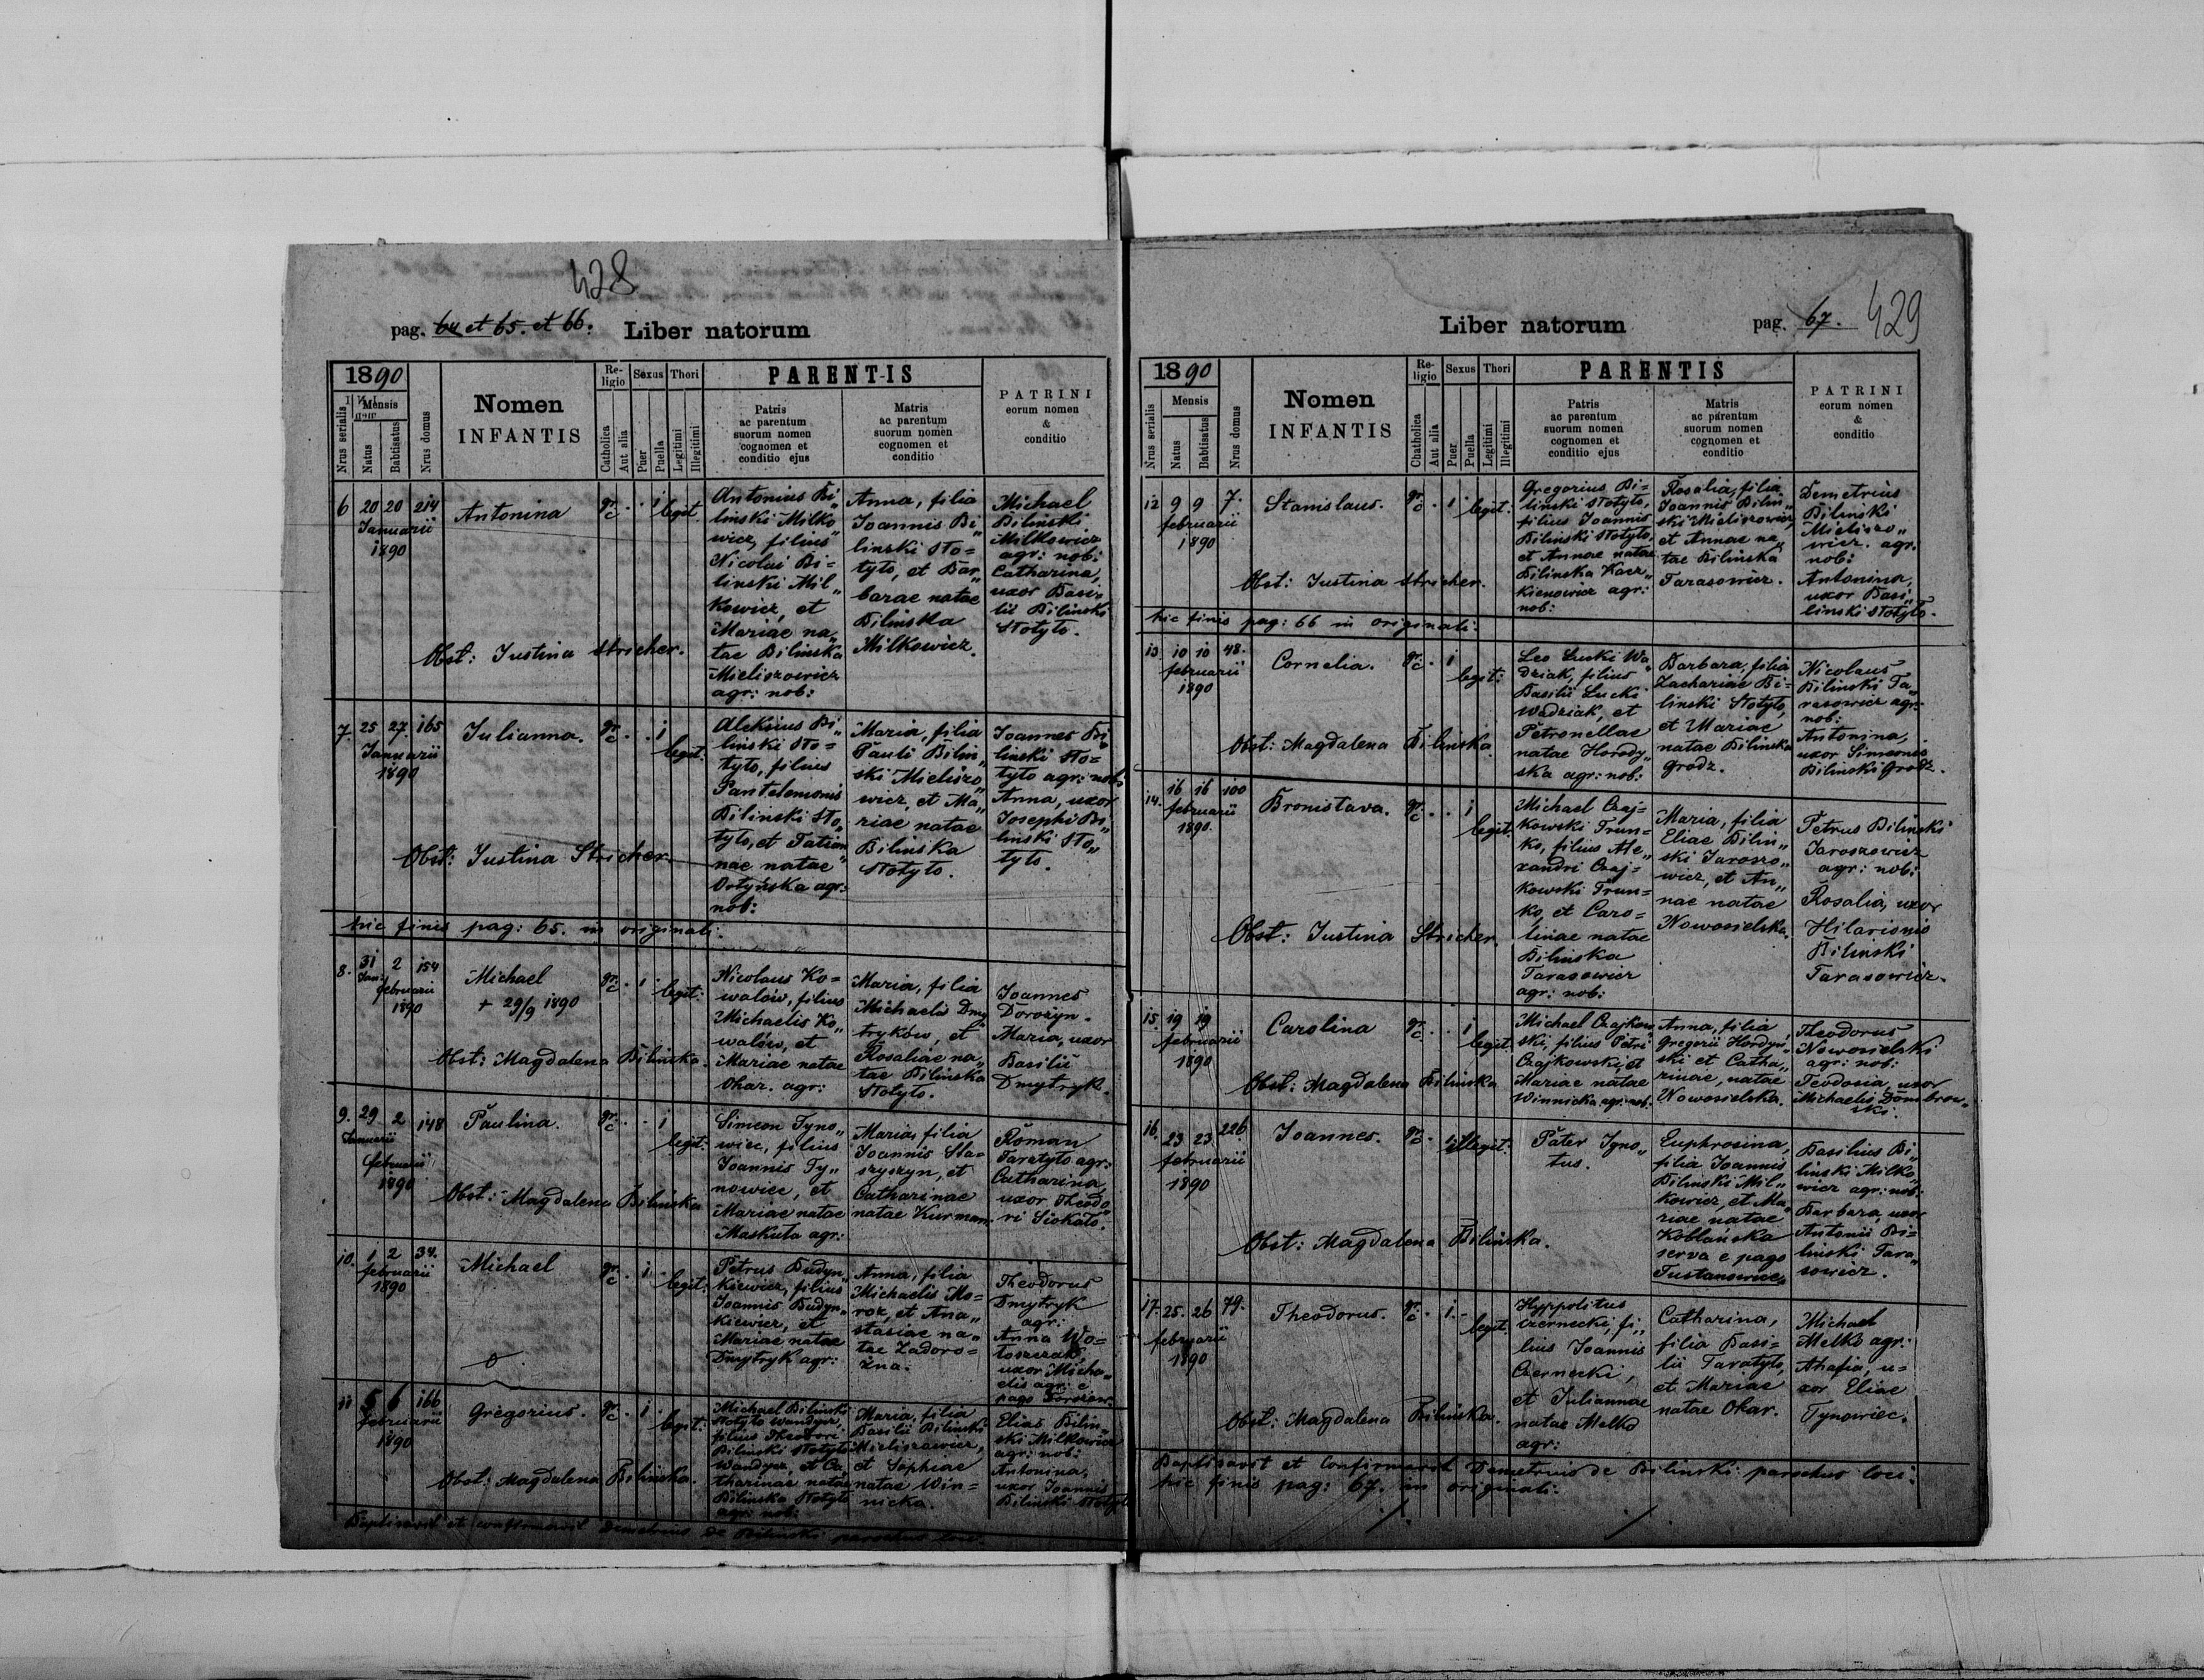 428
pag. 64 et 65. et 66. Liber natorum
1890
Nrus serialis
Mensis
Natus
Babtisatus
Nrus domus
Nomen
INFANTIS
Re-
ligio
Catholica
Aut alia
Sexus
Puer
Puella
Thori
Legitimi
Illegitimi
PARENTIS
Patris
ac parentum
suorum nomen
cognomen et
conditio ejus
Matris
ac parentum
suorum nomen
cognomen et
conditio
PATRINI
eorum nomen
&
conditio
6 20 20 214
Januarii
1890
Antonina
gr. c. . . 1 legit.
Antonius Bi„
linski Milko„
wicz, filius
Nicolai Bi=
linski Mil„
kowicz, et
Mariae na„
tae Bilinska
Mieliszowicz
agr: nob:
Anna, filia
Joannis Bi„
linski Sto=
tyto, et Bar„
barae natae
Bilinska
Milkowicz.
Michael
Bilinski
Milkowicz
agr: nob:
Catharina,
uxor Basi„
lii Bilinski
Stotyto.
Obst: Justina Stricher.
7. 25 27. 165
Januarii
1890
Julianna.
gr. c. . . 1 legit.
Aleksius Bi„
linski Sto=
tyto, filius
Pantelemonis
Bilinski Sto„
tyto, et Tatian„
nae natae
Wotyńska agr:
nob:
Maria, filia
Pauli Bilin„
ski Mieliszo„
wicz, et Ma„
riae natae
Bilinska
Stotyto.
Joannes Bi„
linski Sto=
tyto agr: nob:
Anna, uxor
Josephi Bi„
linski Sto„
tyto.
Obst: Justina Stricher
hic finis pag: 65. in originali.
8. 31 2 154
Jan: februarii
1890
Michael
+ 29/9 1890
gr. c. . 1 legit:
Nicolaus Ko=
walów, filius
Michaelis Ko„
walów, et
Mariae natae
Okar. agr:
Maria, filia
Michaelis Dmy„
tryków, et
Rosaliae na„
tae Bilinska
Stotyto.
Joannes
Dorożyn.
Maria, uxor
Basilii
Dmytryk.
Obst: Magdalena Bilinska.
9. 29 2 148
Januarii
februarii
1890
Paulina.
gr. c. . . 1 legit:
Simeon Tyno„
wiec, filius
Joannis Ty„
nowiec, et
Mariae natae
Maskuta agr:
Maria, filia
Joannis Sta=
szyszyn, et
Catharinae
natae Kurman.
Roman
Taratyto agr:
Catharina,
uxor Theodo„
ri Siokato.
Obst: Magdalena Bilinska
10. 1 2 34.
februarii
1890
Michael
gr. c. . 1. legit:
Petrus Budyn„
kiewicz, filius
Joannis Budyn„
kiewicz, et
Mariae natae
Dmytryk agr:
Anna, filia
Michaelis Mo=
roz, et Ana„
stasiae na„
tae Zadoro=
żna.
Theodorus
Dmytryk
agr:
Anna Wo=
toszczak,
uxor Micha„
elis agr: e
pago
11 5 6 166
februarii
1890
Gregorius.
gr. c. . 1 legit:
Michael Bilinski
Stotyto Wandycz,
filius Theodori
Bilinski Stotyto
Wandycz, et Ca„
tharinae natae
Bilinska Stotyto
agr: nob:
Maria, filia
Basilii Bilinski
Mieliszowicz,
et Sophiae
natae Win=
nicka.
Elias Bilin„
ski Milkowicz
agr: nob:
Antonina,
uxor Joannis
Bilinski Stotyto
Obst: Magdalena Bilinska.
Baptisavit et confirmavit Demetrius de Bilinski parochus loci.
Liber natorum pag. 67. 429
1890
Nrus serialis
Mensis
Natus
Babtisatus
Nrus domus
Nomen
INFANTIS
Re-
ligio
Chatholica
Aut alia
Sexus
Puer
Puella
Thori
Legitimi
Illegitimi
PARENTIS
Patris
ac parentum
suorum nomen
cognomen et
conditio ejus
Matris
ac parentum
suorum nomen
cognomen et
conditio
PATRINI
eorum nomen
&
conditio
12 9 9 7.
februarii
1890
Stanislaus.
gr. c. . 1 legit:
Gregorius Bi-
linski Stotyto,
filius Joannis
Bilinski Stotyto,
et Annae natae
Bilinska Kacz„
kienowicz agr:
nob:
Rosalia, filia
Joannis Bilin„
ski Mieliszowicz,
et Annae na„
tae Bilinska
Tarasowicz.
Demetrius
Bilinski
Mieliszo„
wicz. agr:
nob:
Antonina,
uxor Basi„
linski Stotyto.
Obst: Justina Stricher.
hic finis pag: 66 in originali.
13 10 10 48.
februarii
1890
Cornelia.
gr. c. . 1 legit:
Leo Lucki Wa„
dziak, filius
Basilii Lucki
Wadziak, et
Petronellae
natae Horody„
ska agr: nob:
Barbara, filia
Zachariae Bi=
linski Stotyto,
et Mariae
natae Bilinska
Grodz.
Nicolaus
Bilinski Ta„
rasowicz agr:
nob:
Antonina,
uxor Simeonis
Bilinski Grodz.
Obst: Magdalena Bilinska
14. 16 16 100
februarii
1890.
Bronistava.
gr. c. . . 1 legit.
Michael Czaj=
kowski Trun=
ko, filius Ale„
xandri Czaj=
kowski Trun=
ko, et Caro=
linae natae
Bilinska
Tarasowicz
agr: nob:
Maria, filia
Eliae Bilin„
ski Jaroszo„
wicz, et An„
nae natae
Nowosielska.
Petrus Bilinski
Jaroszowicz
agr: nob:
Rosalia, uxor
Hilarionis
Bilinski
Tarasowicz.
Obst: Justina Stricher.
15. 19 19
februarii
1890
Carolina
gr. c. . . 1 legit.
Michael Czajkow
ski, filius Petri
Czajkowski, et
Mariae natae
Winnicka agr: nob:
Anna, filia
Gregorii Hordyń„
ski et Catha„
rinae, natae
Nowosielska.
Theodorus
Nowosielski
agr: nob:
Teodosia, uxor
Michaelis Dombrow„
ski.
Obst: Magdalena Bilinska
16. 23 23 226
februarii
1890
Joannes.
gr. c. . 1 illegit.
Pater Igno„
tus.
Euphrosina,
filia Joannis
Bilinski Mil„
kowicz, et Ma„
riae natae
Koblańska
serva e pago
Tustanowice.
Basilius Bi„
linski Milko„
wicz agr: nob:
Barbara, uxor
Antonii Bi=
linski Tara„
sowicz.
Obst: Magdalena Bilinska.
17. 25. 26 79.
februarii
1890
Theodorus.
gr. c. . 1. legit.
Hyppolitus
Czernecki, fi„
lius Joannis
Czernecki,
et Juliannae
natae Melko
agr:
Catharina,
filia Basi=
lii Taratyto,
et Mariae
natae Okar.
Michael
Melko agr:
Ahafia, u=
xor Eliae
Tynowiec.
Obst: Magdalena Bilinska.
Baptisavit et Confirmavit Demetrius de Bilinski parochus loci.
hic finis pag: 67. in originali.